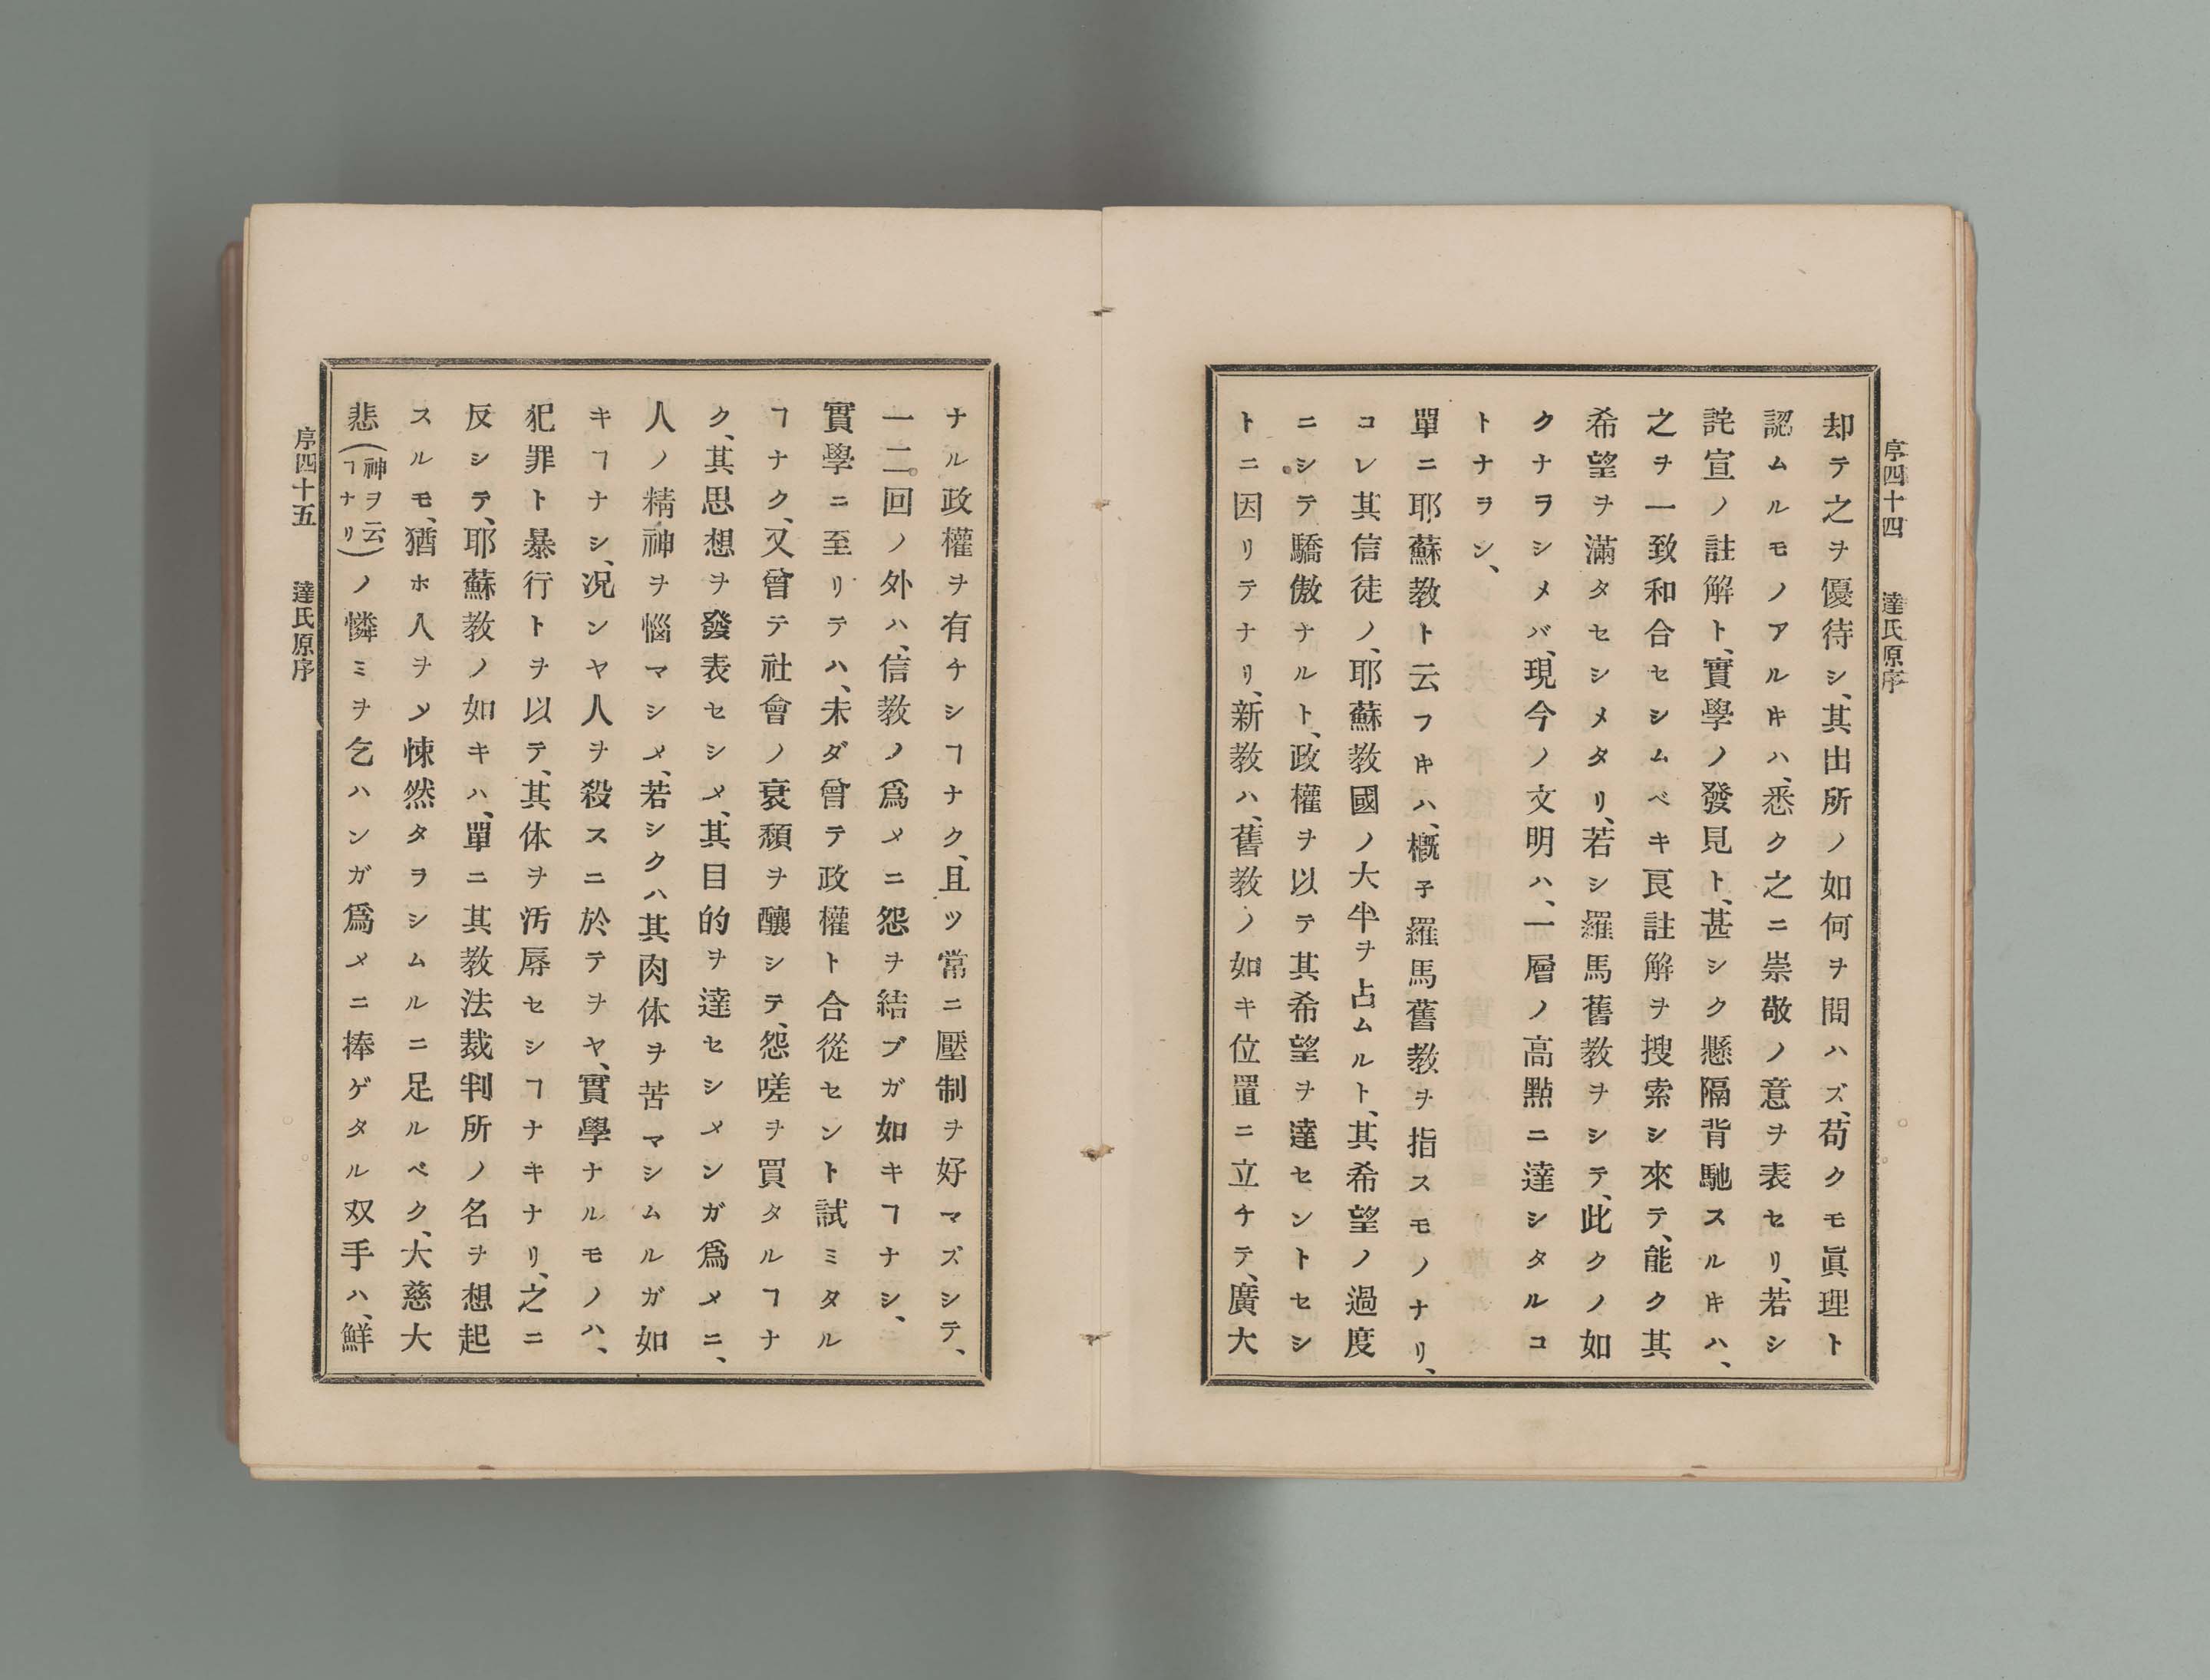 序四十四 達氏原序
却テ之ヲ優待シ、其出所ノ如何ヲ問ハズ、苟クモ眞理ト
認ムルモノアルキハ、悉ク之ニ崇敬ノ意ヲ表セリ、若シ
詫宣ノ註解ト、實學ノ發見ト、甚シク懸隔背馳スルキハ、
之ヲ一致和合セシムベキ良註解ヲ搜索シ來テ、能ク其
希望ヲ滿タセシメタリ、若シ羅馬舊教ヲシテ、此クノ如
クナラシメバ、現今ノ文明ハ、一層ノ高點ニ達シタルコ
トナラン、
單ニ耶蘇教ト云フキハ、概子羅馬舊教ヲ指スモノナリ、
コレ其信徒ノ、耶蘇教國ノ大半ヲ占ムルト、其希望ノ過度
ニシテ驕傲ナルト、政權ヲ以テ其希望ヲ達セントセシ
トニ因リテナリ、新教ハ、舊教ノ如キ位置ニ立チテ、廣大
ナル政權ヲ有チシヿナク、且ツ常ニ壓制ヲ好マズシテ、
一二回ノ外ハ、信教ノ爲メニ怨ヲ結ブガ如キヿナシ、
實學ニ至リテハ、未ダ曾テ政權ト合從セント試ミタル
ヿナク、又曾テ社會ノ衰頽ヲ釀シテ、怨嗟ヲ買タルヿナ
ク、其思想ヲ發表セシメ、其目的ヲ達セシメンガ爲メニ、
人ノ精神ヲ惱マシメ、若シクハ其肉体ヲ苦マシムルガ如
キヿナシ、況ンヤ人ヲ殺スニ於テヲヤ、實學ナルモノハ、
犯罪ト暴行トヲ以テ、其体ヲ汚辱セシヿナキナリ、之ニ
反シテ、耶蘇教ノ如キハ、單ニ其教法裁判所ノ名ヲ想起
スルモ、猶ホ人ヲメ悚然タヲシムルニ足ルベク、大慈大
悲(神ヲ云ヿナリ)ノ憐ミヲ乞ハンガ爲メニ捧ゲタル双手ハ、鮮
序四十五 達氏原序